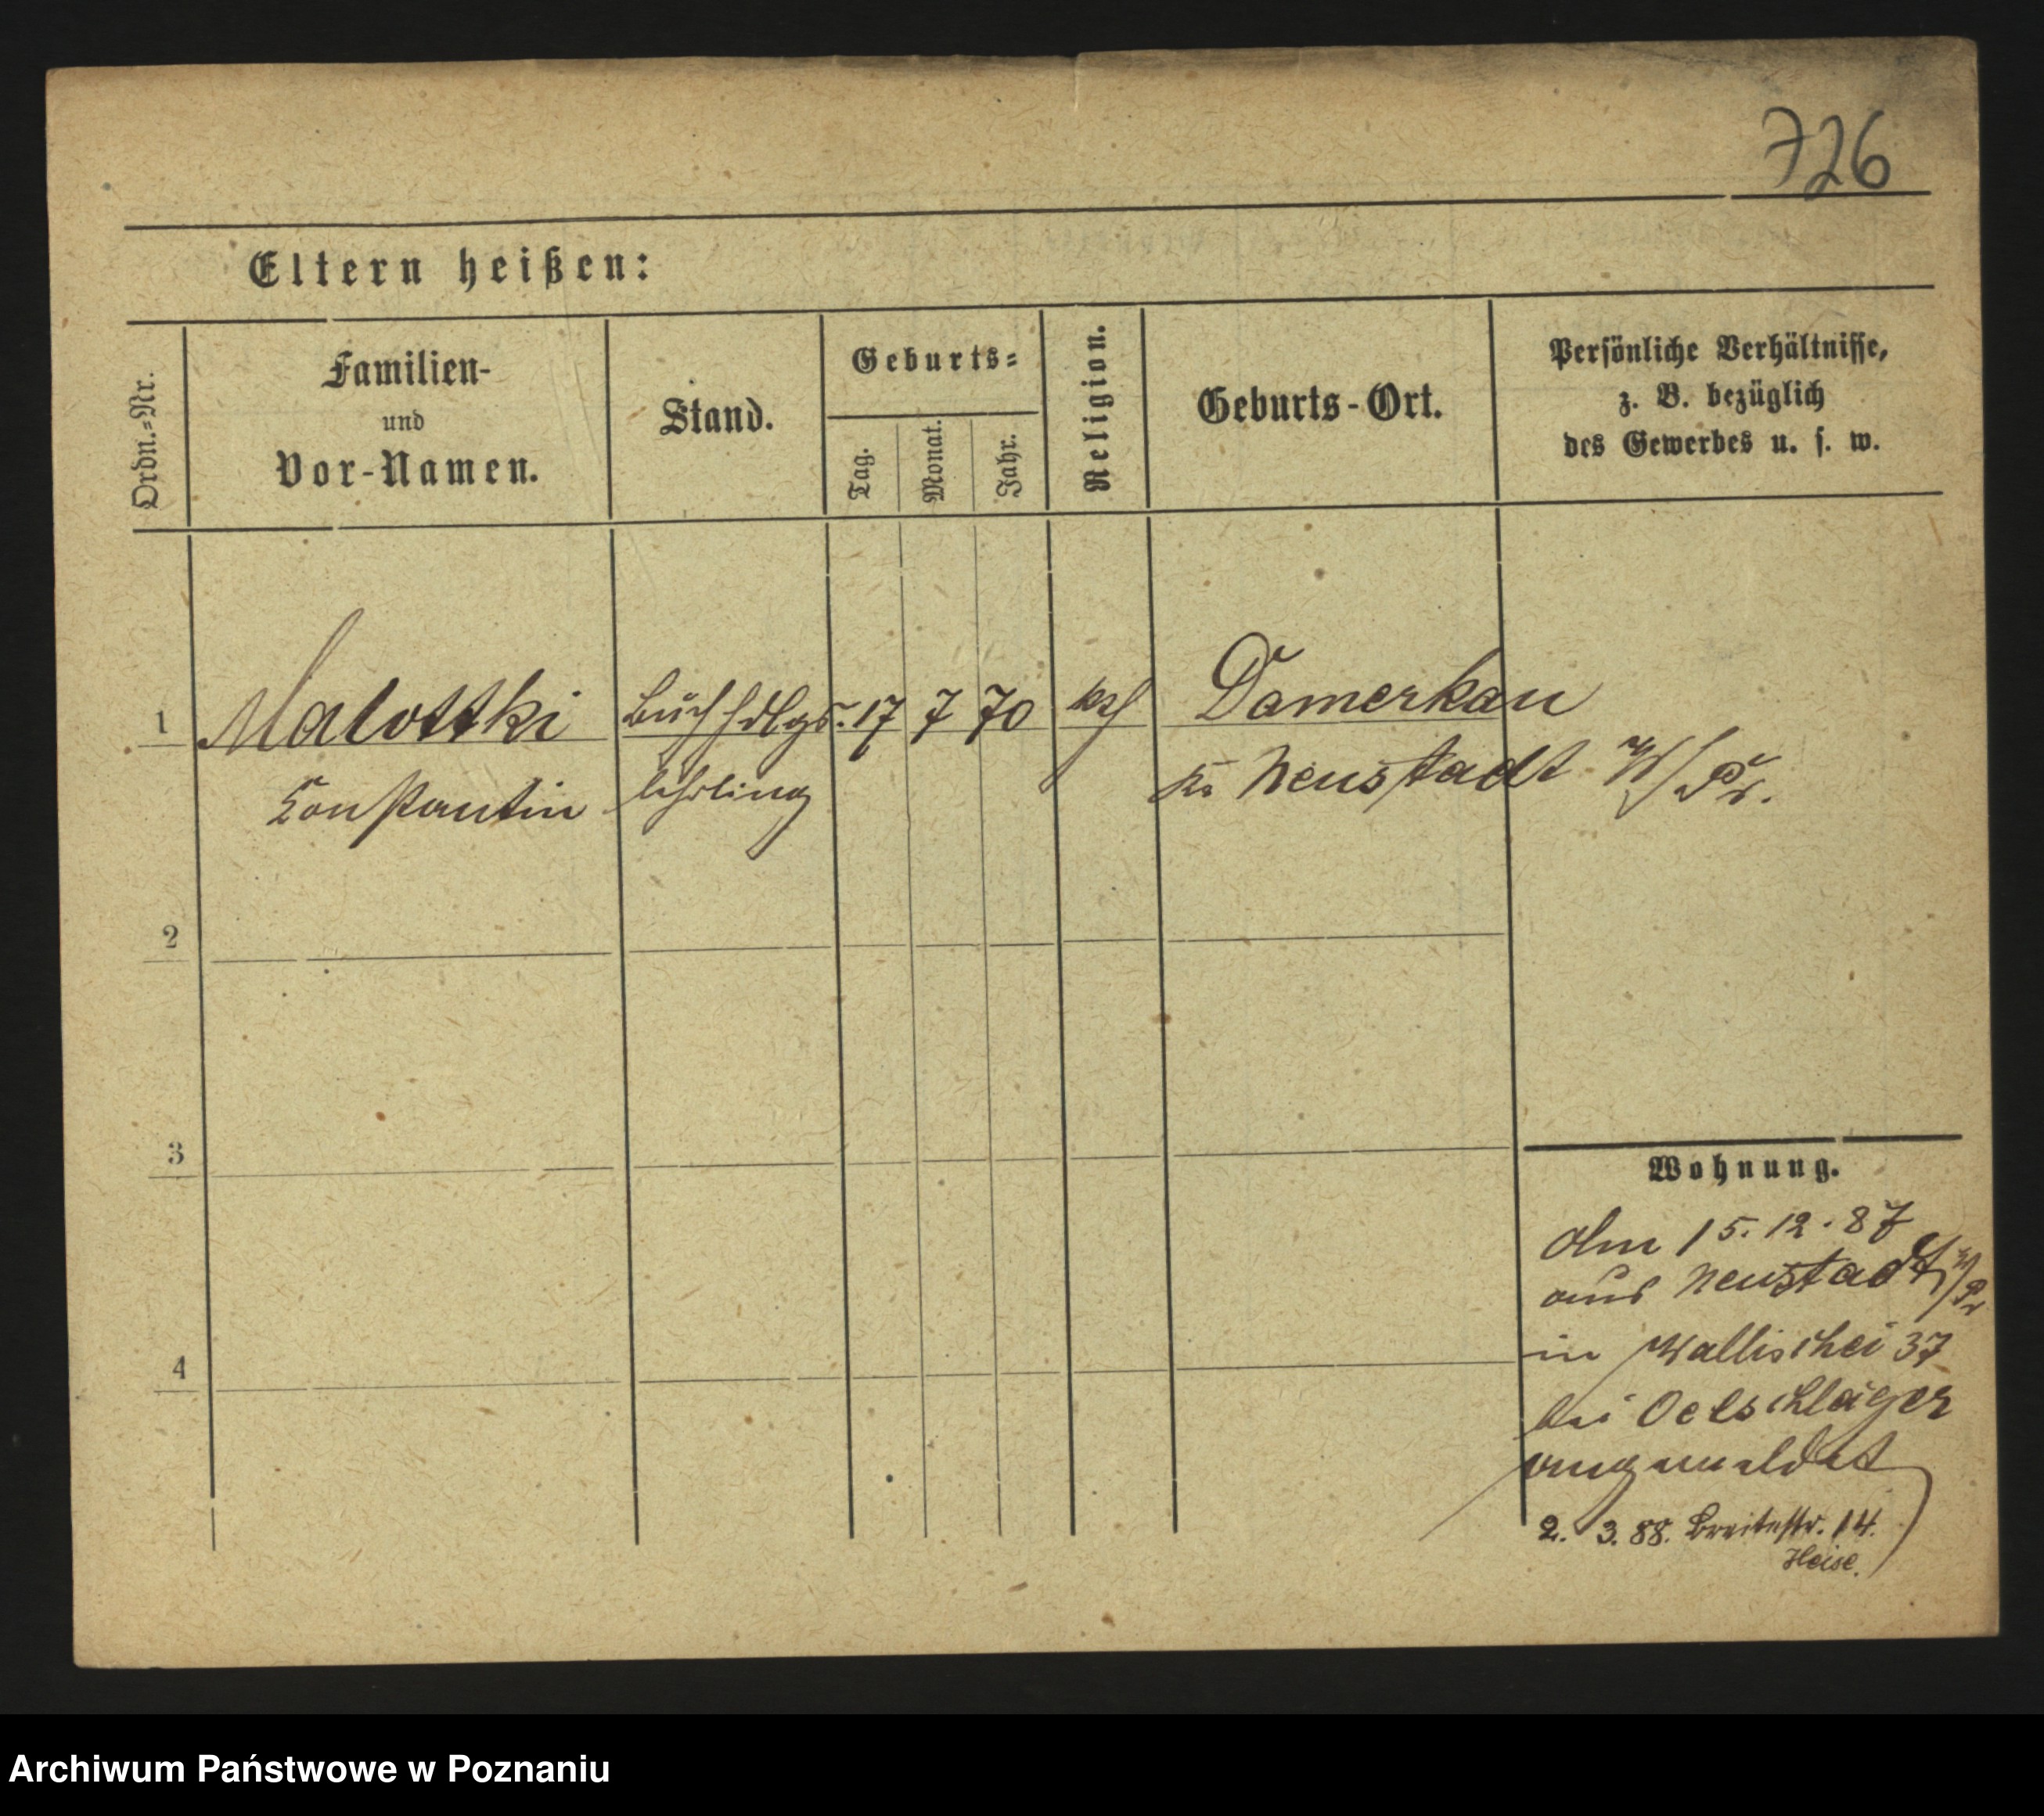 726
Eltern heißen:
Ordn.-Nr.
Familien-
und
Vor-Namen.
Stand.
Geburts-
Tag.
Monat.
Jahr.
Religion.
Geburts-Ort.
Persönliche Verhältnisse,
z. B. bezüglich
des Gewerbes u. s. w.
1 Malottki Buchhdlgs. 17 7 70 kth Damerkau
Konstantin lehrling Kr Neustadt W/Pr.
2
3
4
Wohnung.
Am 15.12.87
aus Neustadt W/Pr
in Wallischei 37
bei Oelschläger
angemeldet
2. 3. 88. Breitestr. 14.
Heise.
Archiwum Państwowe w Poznaniu